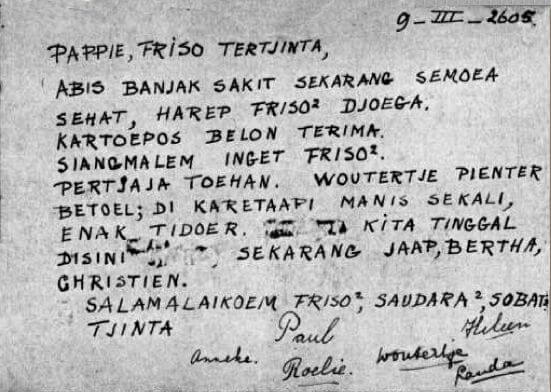 9-III-2605.
PAPPIE, FRISO TERTJINTA,
ABIS BANJAK SAKIT SEKARANG SEMOEA
SEHAT, HAREP FRISO² DJOEGA.
KARTOEPOS BELON TERIMA.
SIANGMALEM INGET FRISO².
PERTJAJA TOEHAN. WOUTERTJE PIENTER
BETOEL; DI KARETAAPI MANIS SEKALI,
ENAK TIDOER. KITA TINGGAL
DISINI SEKARANG JAAP, BERTHA,
CHRISTIEN.
SALAMALAIKOEM FRISO², SAUDARA², SOBAT²
TJINTA Paul Heleen
Anneke. Roelie. Woutertje